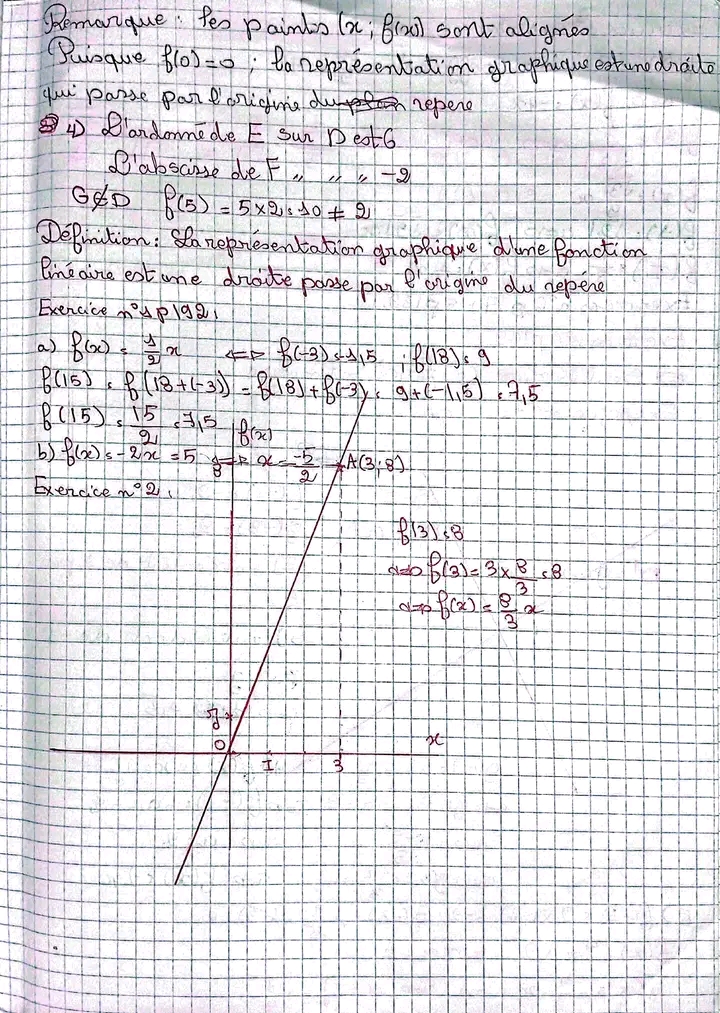 Remarque : les points (x ; f(x)) sont alignés
Puisque f(0)=0 ; la représentation graphique est une droite
qui passe par l'origine du repere
4) L'ordonné de E sur D est 6
L'abscisse de F " " " -2
G∉D f(5) = 5×2 = 10 ≠ 2
Définition : La représentation graphique d'une fonction
linéaire est une droite passe par l'origine du repére
Exercice n°1 p 192.
a) f(x) = 1/2 x <=> f(-3) = -1,5 ; f(18) = 9
f(15) = f(18+(-3)) = f(18) + f(-3) = 9+(-1,5) = 7,5
f(15) = 15/2 = 7,5
f(x)
b) f(x) = -2x = 5 <=> x = -5/2
8
A(3;8)
Exercice n°2.
f(3) = 8
<=> f(3) = 3 × 8/3 = 8
<=> f(x) = 8/3 x
J
O
x
I
3